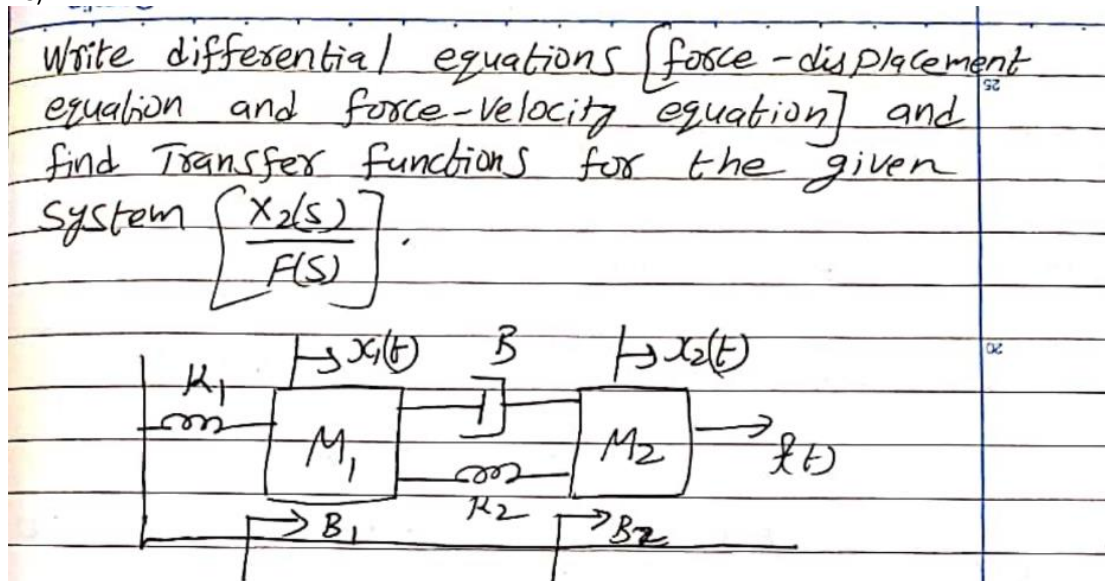 Write differential equations [force-displacement
equation and force-velocity equation] and
find Transfer functions for the given
system [X2(s)
F(S)] .
x1(t) B x2(t)
K1
M1 M2 f(t)
K2
B1 B2
25
20